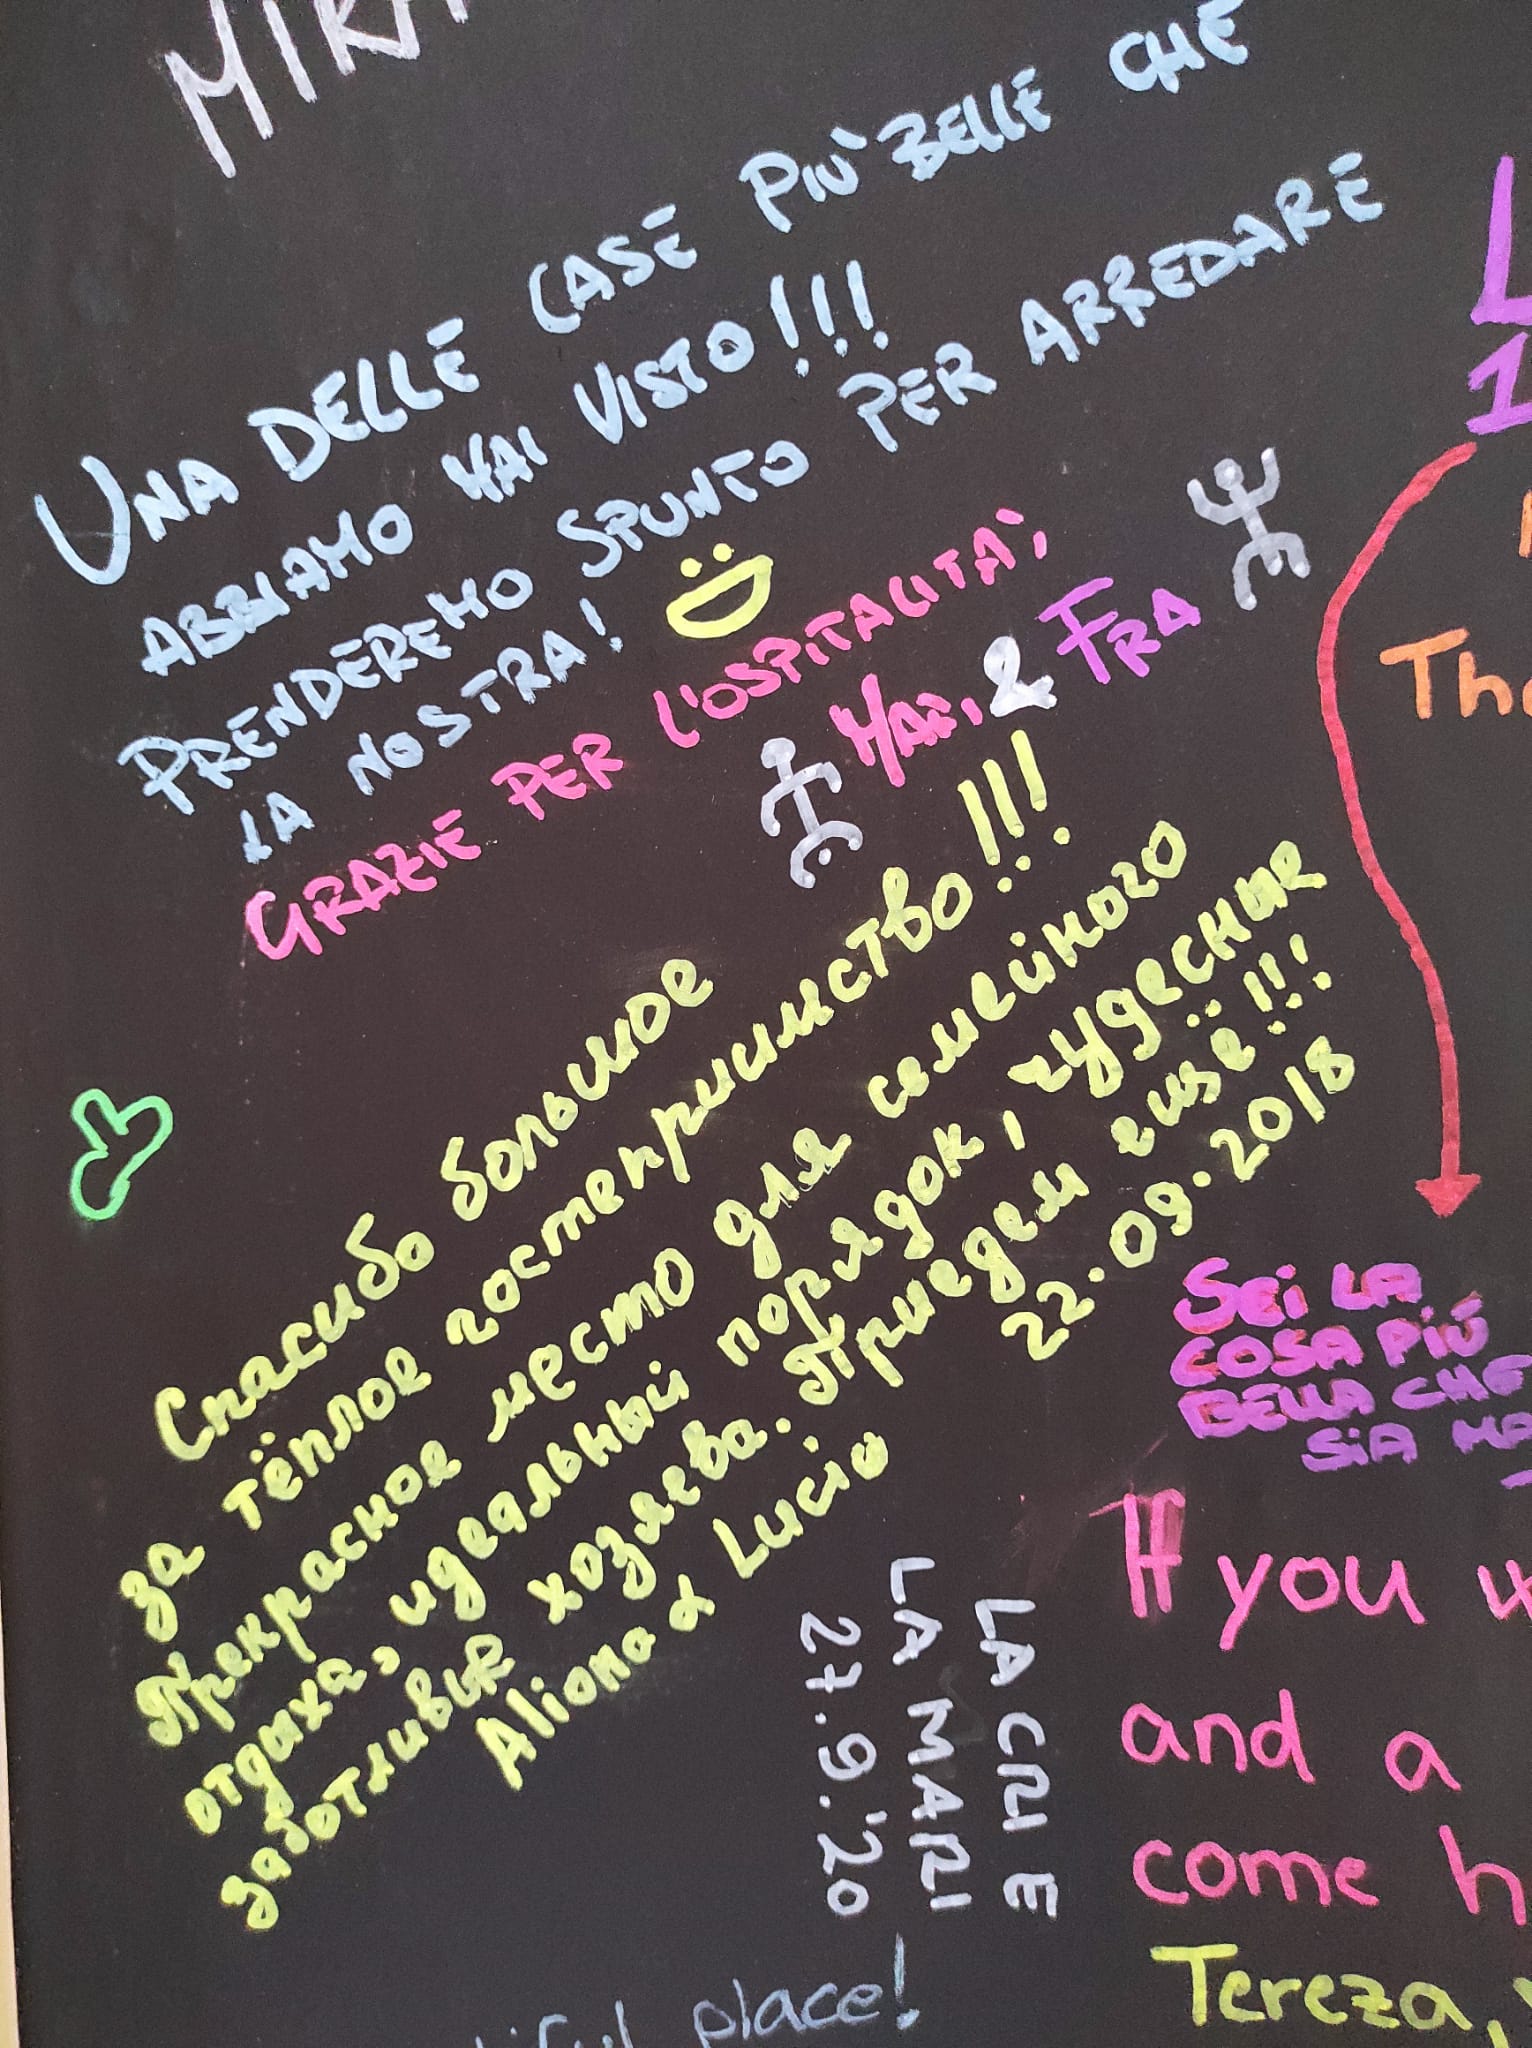 UNA DELLE CASE PIÙ BELLE CHE
ABBIAMO MAI VISTO!!!
PRENDEREMO SPUNTO PER ARREDARE
LA NOSTRA!
GRAZIE PER L'OSPITALITÀ;
& FRA
Спасибо большое
за тёплое гостеприимство!!!
Прекрасное место для семейного
отдыха, идеальный порядок, чудесные
заботливые хозяева. Приедем ещё!!!
Aliona & Lucio
22.09.2018
LA CRI E
LA MARI
27.9.'20
SEI LA
COSA PIÙ
BELLA CHE
SIA
If you
and a
come h
Tereza,
place!